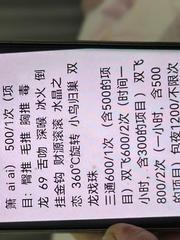 萧 ai ai） 500/1次（项
目：臀推 毛推 胸推 毒
龙 69 舌吻 深喉 冰火 倒
挂金钩 财源滚滚 水晶之
恋 360℃旋转 小鸟归巢 双
龙戏珠
三通600/1次（含500的项
目）双飞600/2次（时间一
小时，含300的项目）双飞
800/2次（一小时，含500
的项目）包夜1200/不限次